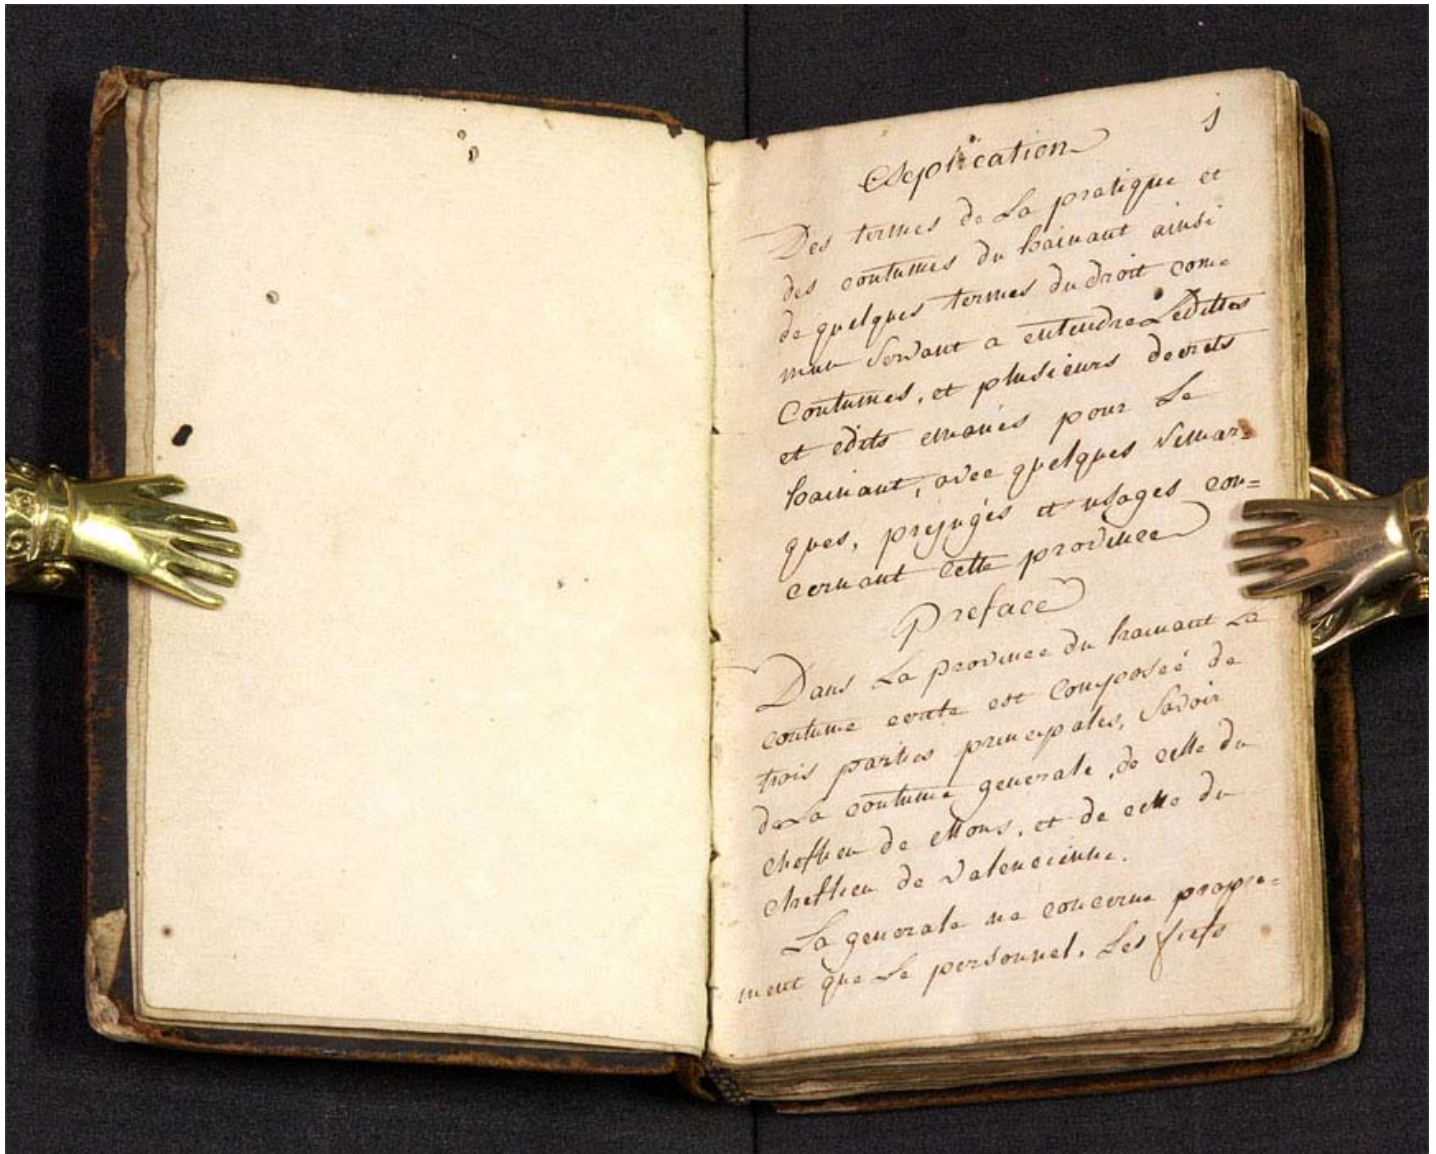 1
Explication
Des termes de La pratique et
des coutumes du hainaut ainsi
de quelques termes du droit com=
mun servant a entendre Lesdittes
Coutumes, et plusieurs decrets
et edits emanés pour Le
hainaut, avec quelques remar=
ques, prejugés et usages con=
cernant cette province
Preface
Dans La province du hainaut La
coutume ecrite est Composeé de
trois parties principales, Savoir
de La coutume generale, de celle du
cheflieu de Mons, et de celle du
cheflieu de valencienne.
La generale ne concerne propre=
ment que Le personnel. Les fiefs